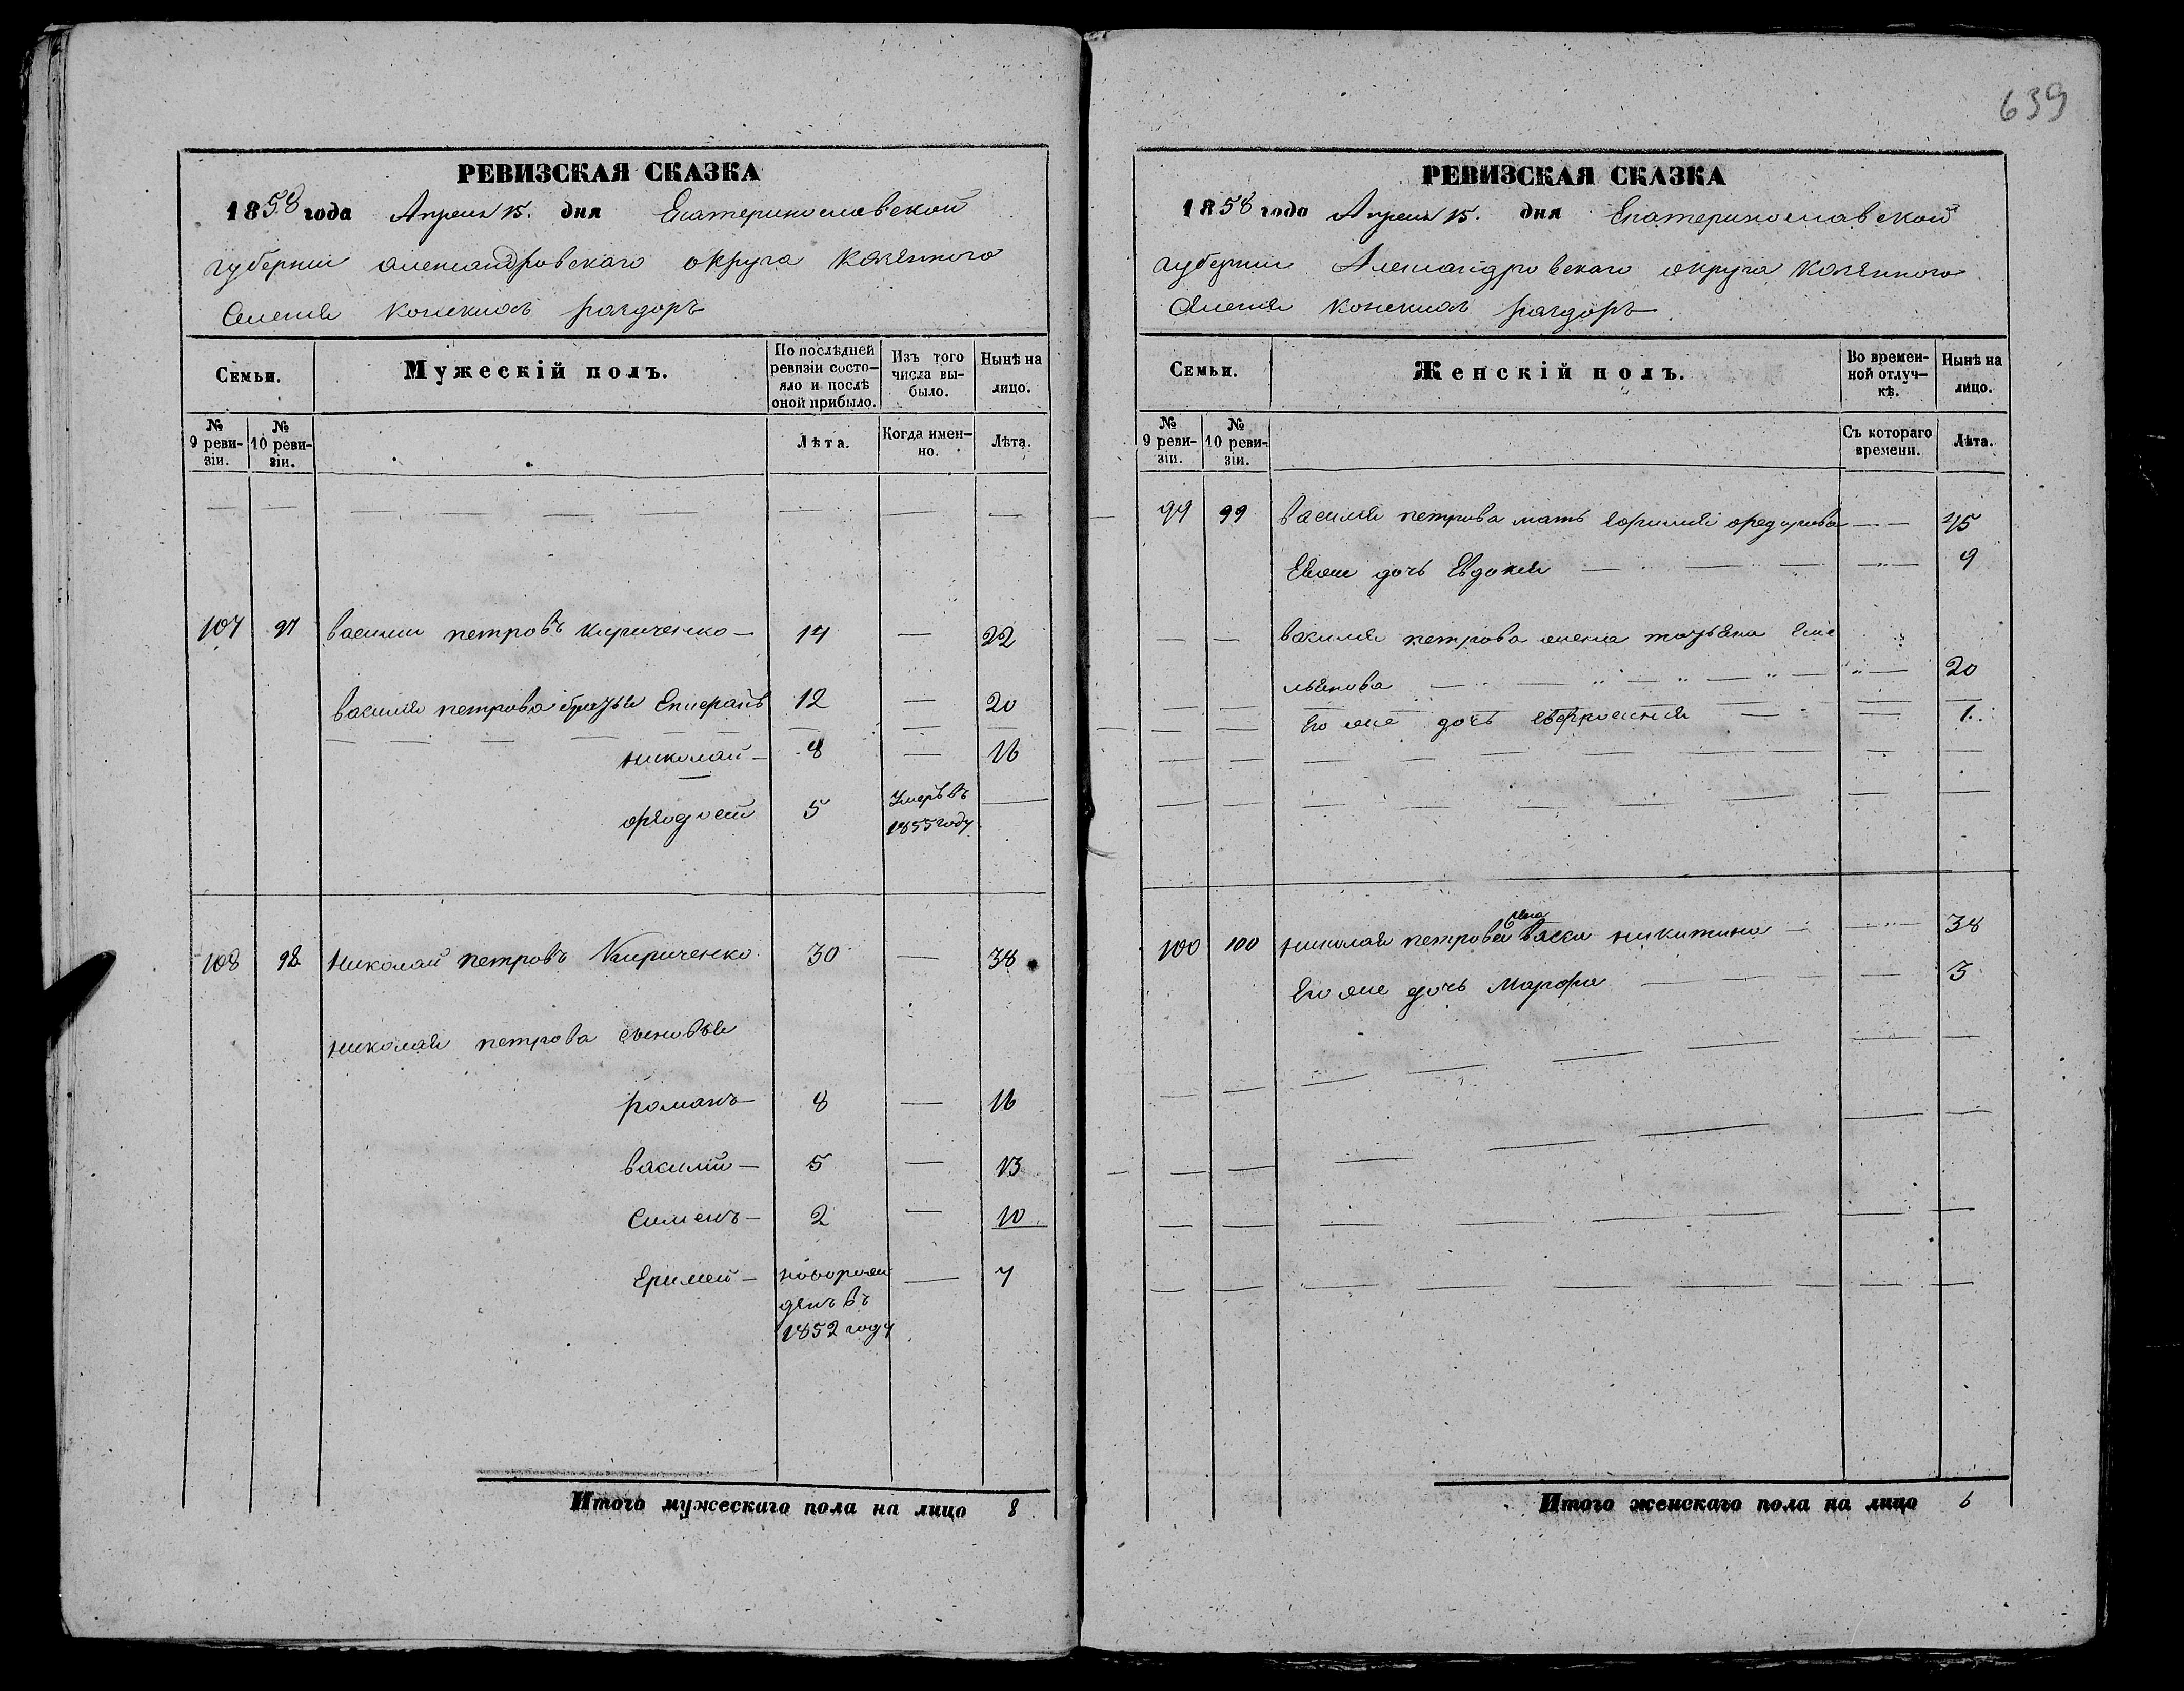 639
РЕВИЗСКАЯ СКАЗКА
1858 года Апреля 15. дня Екатеринославской
губернии александровскаго округа казенного
Селения конских раздоръ
Семьи.
Мужескій полъ.
По послѣдней ревизіи состо-яло и послѣ оной прибыло.
Изъ того числа вы-было.
Нынѣ на лицо.
№ 9 реви-зіи.
№ 10 реви-зіи.
Лѣта.
Когда имен-но.
Лѣта.
107 97 василии петровъ кириченко — 14 — 22
василия петрова братья Епифанъ 12 — 20
николай — 8 — 16
5 Умеръ въ
1855 году
108 98 Николай петровъ Кириченко 30 — 38
николая петрова сыновья
романъ 8 — 16
василий — 5 — 13
Сименъ — 2 — 10
Еримей — новорож — 7
денъ въ
1852 году
Итого мужескаго пола на лицо 8
РЕВИЗСКАЯ СКАЗКА
1858 года Апреля 15. дня Екатеринославской
губернии Александровскаго округа казенного
Селения конских раздоръ
Семьи.
Женскій полъ.
Во времен-ной отлуч-кѣ.
Нынѣ на лицо.
№ 9 реви-зіи.
№ 10 реви-зіи.
Съ котораго времени.
Лѣта.
99 99 василия петрова мать 45
Евоже дочь Евдокия 9
василия петрова жена татьяна Еме
льянова 20
Его же дочь 1
100 100 николая петрова жена васса никитина 38
Его же дочь Марфа 3
Итого женскаго пола на лицо 6